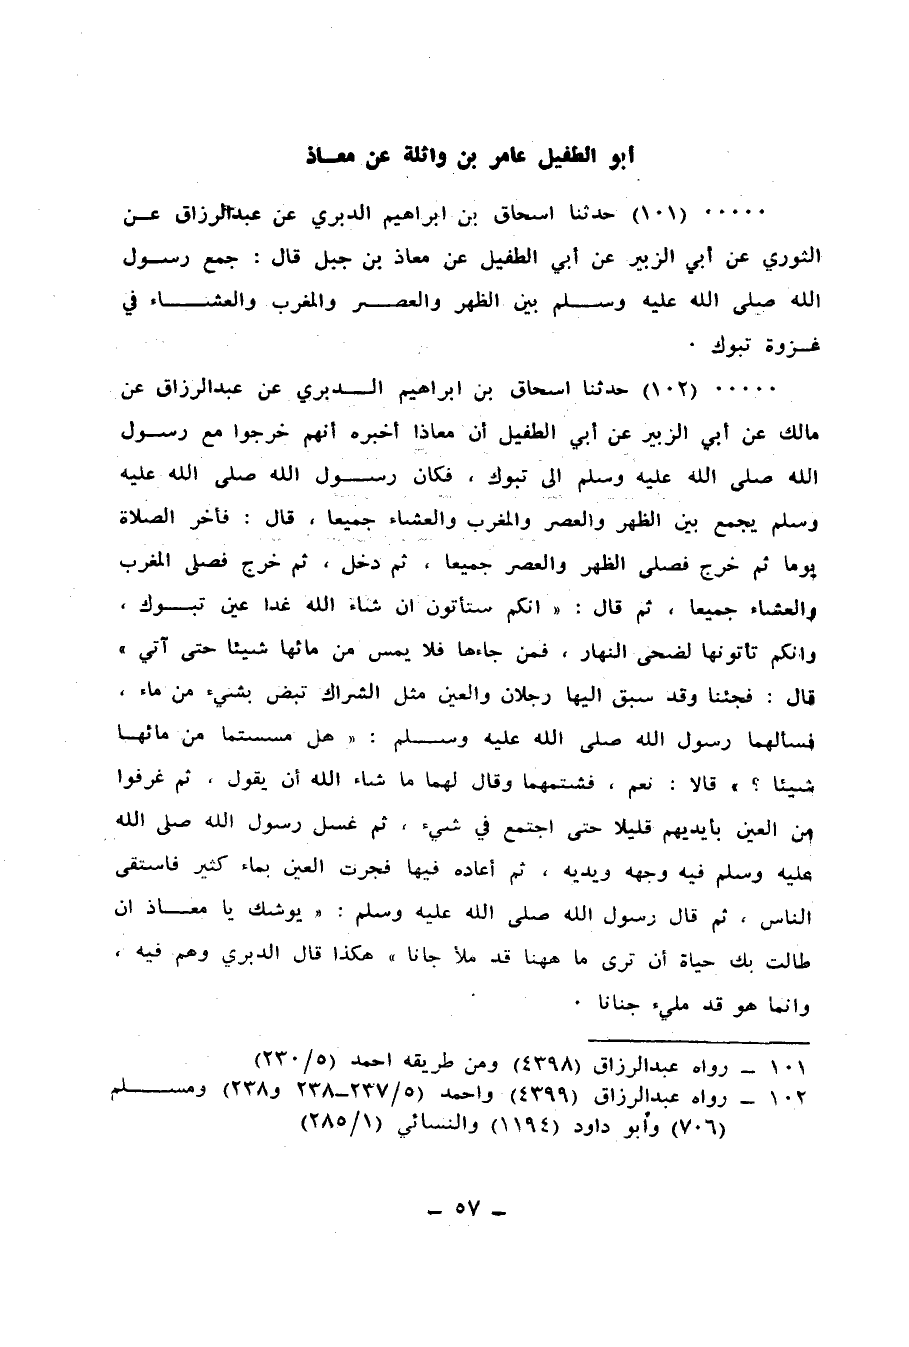 أبو الطفيل عامر بن واثلة عن معـاذ
٠٠٠٠٠ (١٠١) حدثنا اسحاق بن ابراهيم الدبري عن عبدالرزاق عـن
الثوري عن أبي الزبير عن أبي الطفيل عن معاذ بن جبل قال : جمع رسـول
الله صلى الله عليه وسـلم بين الظهر والعصـر والمغرب والعشـاء في
غـزوة تبوك ٠
٠٠٠٠٠ (١٠٢) حدثنا اسحاق بن ابراهيم الـدبري عن عبدالرزاق عن
مالك عن أبي الزبير عن أبي الطفيل أن معاذا أخبره أنهم خرجوا مع رسـول
الله صلى الله عليه وسلم الى تبوك ، فكان رسـول الله صلى الله عليه
وسلم يجمع بين الظهر والعصر والمغرب والعشاء جميعا ، قال : فأخر الصلاة
يوما ثم خرج فصلى الظهر والعصر جميعا ، ثم دخل ، ثم خرج فصلى المغرب
والعشاء جميعا ، ثم قال : « انكم ستأتون ان شاء الله غدا عين تبـوك ،
وانكم تأتونها لضحى النهار ، فمن جاءها فلا يمس من مائها شيئا حتى آتي »
قال : فجئنا وقد سبق اليها رجلان والعين مثل الشراك تبض بشيء من ماء ،
فسألهما رسول الله صلى الله عليه وسـلم : « هل مسستما من مائهـا
شيئا ؟ » قالا : نعم ، فشتمهما وقال لهما ما شاء الله أن يقول ، ثم غرفوا
من العين بأيديهم قليلا حتى اجتمع في شيء ، ثم غسل رسول الله صلى الله
عليه وسلم فيه وجهه ويديه ، ثم أعاده فيها فجرت العين بماء كثير فاستقى
الناس ، ثم قال رسول الله صلى الله عليه وسلم : « يوشك يا معـاذ ان
طالت بك حياة أن ترى ما ههنا قد ملأ جانا » هكذا قال الدبري وهم فيه ،
وانما هو قد مليء جنانا ٠
١٠١ ـ رواه عبدالرزاق (٤٣٩٨) ومن طريقه احمد (٢٣٠/٥)
١٠٢ ـ رواه عبدالرزاق (٤٣٩٩) واحمد (٢٣٧/٥ـ٢٣٨ و٢٣٨) ومسـلم
(٧٠٦) وأبو داود (١١٩٤) والنسائي (٢٨٥/١)
ـ ٥٧ ـ